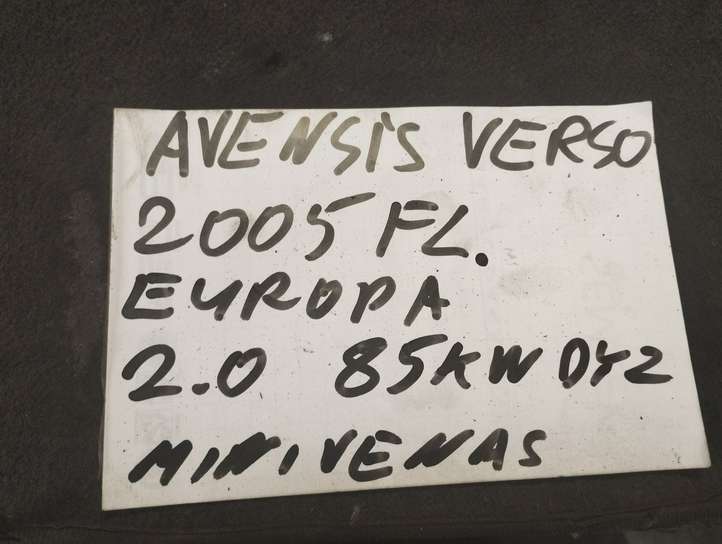 AVENSIS VERSO
2005 FL.
EUROPA
2.0 85KW DYZ
MINIVENAS